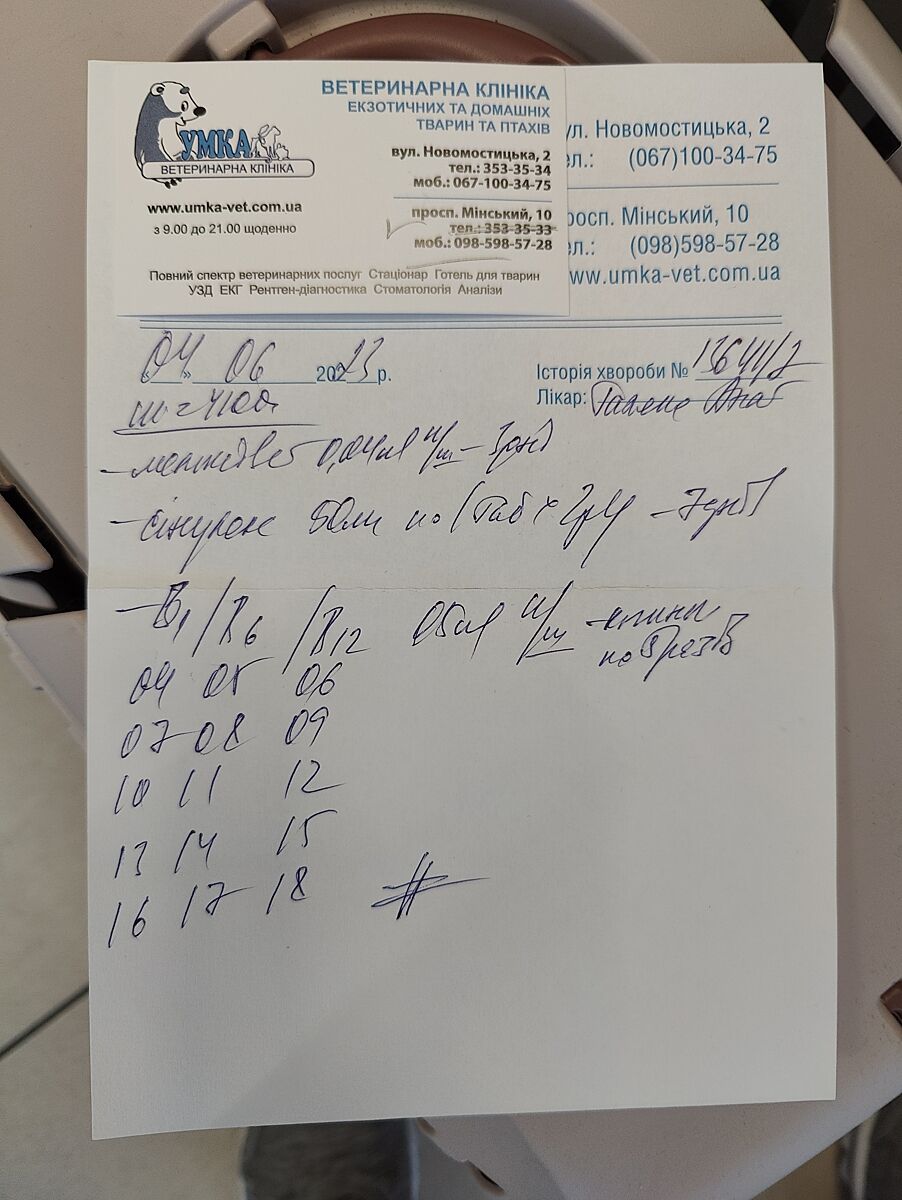 ВЕТЕРИНАРНА КЛІНІКА
ЕКЗОТИЧНИХ ТА ДОМАШНІХ
ТВАРИН ТА ПТАХІВ
УМКА
ВЕТЕРИНАРНА КЛІНІКА
вул. Новомостицька, 2
тел.: 353-35-34
моб.: 067-100-34-75
www.umka-vet.com.ua
з 9.00 до 21.00 щоденно
просп. Мінський, 10
тел.: 353-35-33
моб.: 098-598-57-28
Повний спектр ветеринарних послуг Стаціонар Готель для тварин
УЗД ЕКГ Рентген-діагностика Стоматологія Аналізи
ул. Новомостицька, 2
ел.: (067)100-34-75
росп. Мінський, 10
ел.: (098)598-57-28
ww.umka-vet.com.ua
«04» 06 2023 р.
Історія хвороби №
Лікар:
0,04мл п/ш – 3дні
50мг по 1 таб × 2р/д – 7днів
– В1 / В6 / В12
04 05 06
07 08 09
10 11 12
13 14 15
16 17 18 #